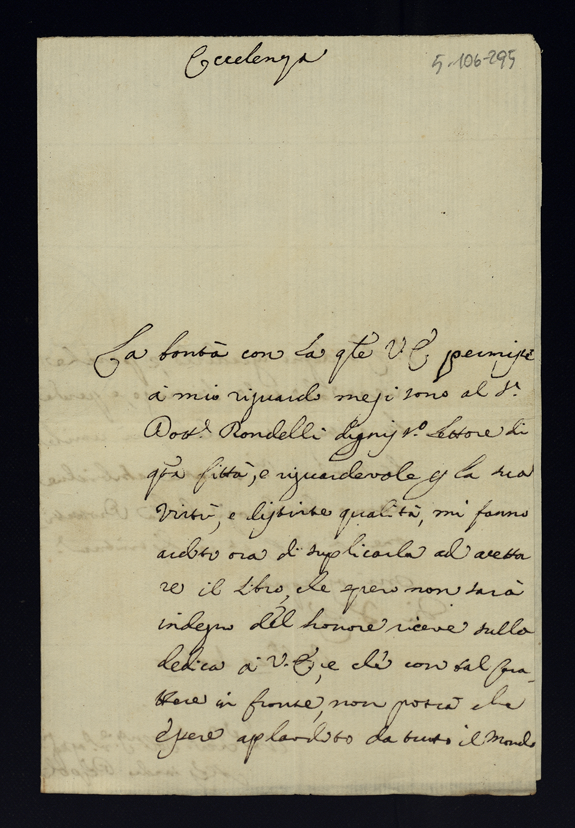 Eccelenza
5-106-295
La bontà con la qle V.E. permise
à mio riguardo mesi sono al Sr.
Dott.r Rondelli digniss.o Lettore di
qta Città, e riguardevole p la sua
Virtù, e distinte qualità, mi fanno
ardito ora di suplicarla ad acetta
re il libro, che spero non sarà
indegno del honore riceve sulla
dedica à V.E., e che con tal
in fronte, non potrà che
essere aplaudito da tutto il Mondo